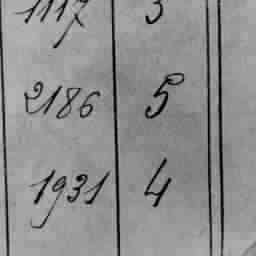 1117 3
2186 5
1931 4